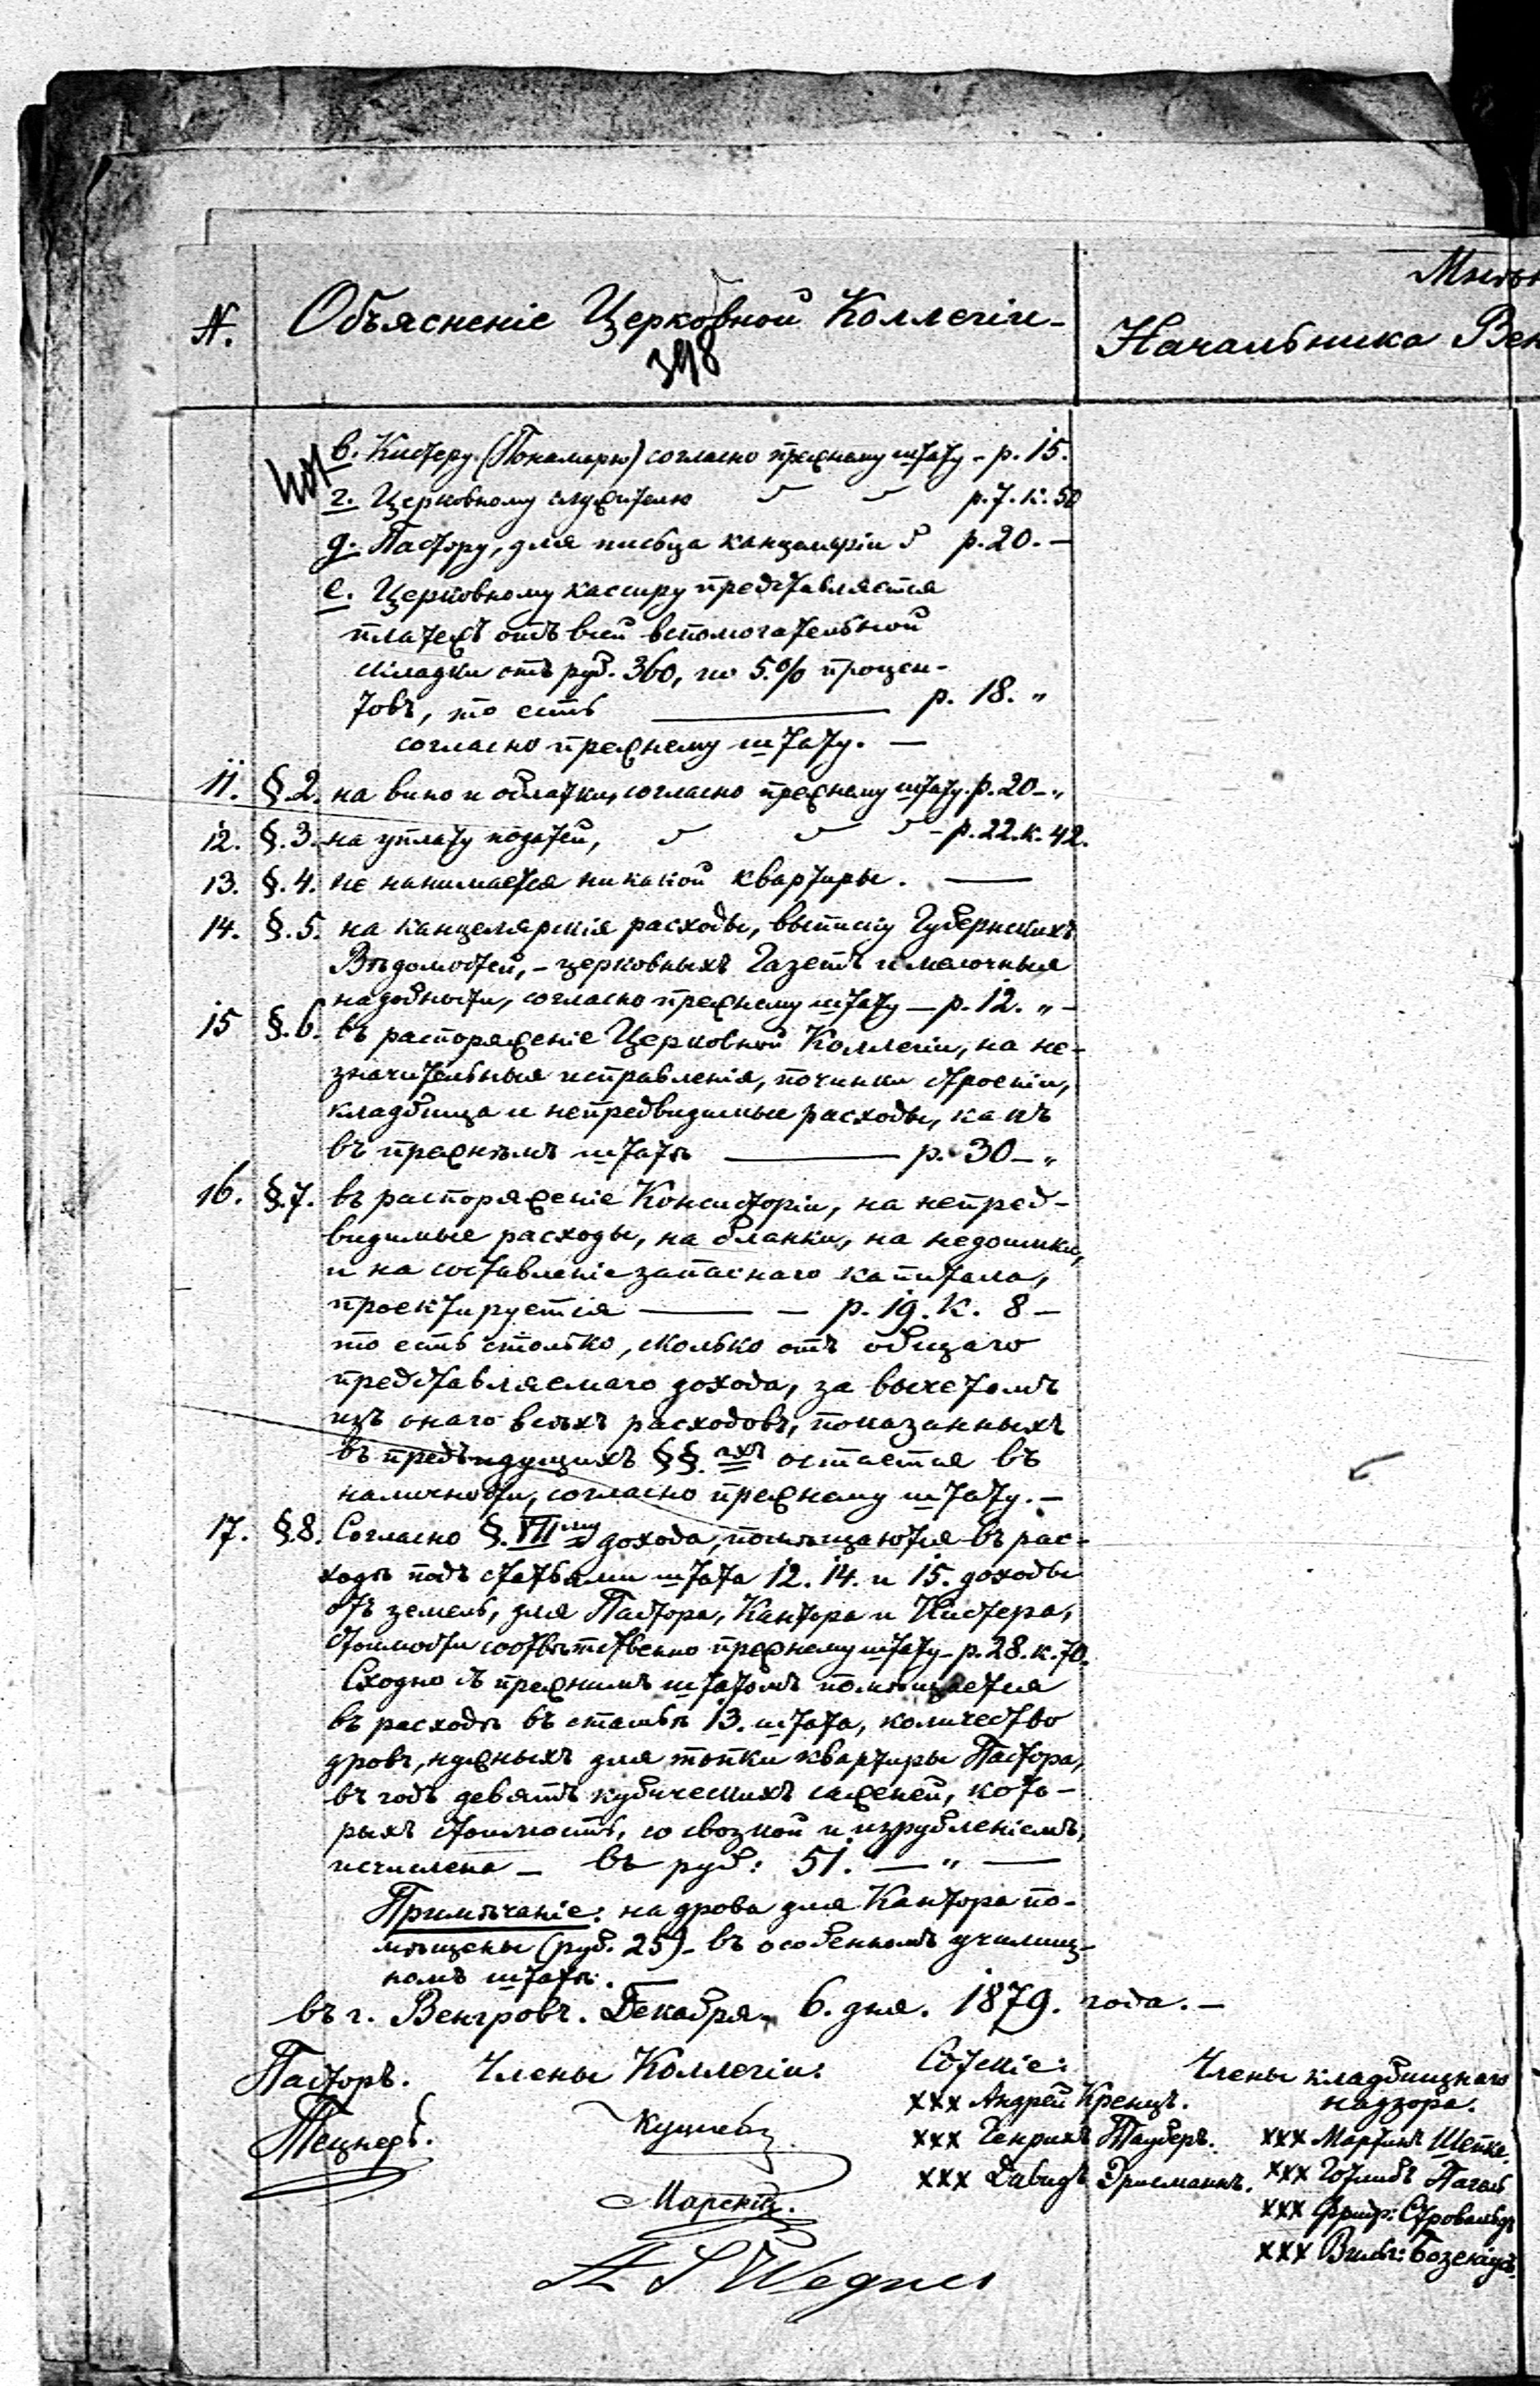 Мнѣн
N. Объясненіе Церковной Коллегіи- Начальника Вен
398
401
в. Кистеру (Пономарю) согласно прежнему штату - р. 15.
г. Церковному служителю р. 7. к. 50
д. Пастору, для писца канцеляріи р. 20. —
е. Церковному кассиру представляется
платежъ отъ всей вспомогательной
складки отъ руб. 360, по 5.% процен-
товъ, то есть — р. 18. „
согласно прежнему штату. —
11. §.2. на вино и облатки, согласно прежнему штату. р. 20 - „
12. §.3. на уплату податей, - р. 22. к. 42.
13. §.4. не нанимается никакой квартиры. —
14. §.5. на канцелярскія расходы, выписку Губернскихъ
Вѣдомостей, - церковныхъ Газетъ и мелочныя
надобности, согласно прежнему штату — р. 12. „ -
15 §.6. въ распоряженіе Церковной Коллегіи, на не-
значительныя исправленія, починки строеніи,
кладбища и непредвидимые расходы, какъ
въ прежнемъ штатѣ — р. 30 - „
16. §.7. въ распоряженіе Консисторіи, на непред-
видимые расходы, на бланки, на недоимки,
и на составленіе запаснаго капитала,
проектируется — - р. 19. к. 8 -
то есть столько, сколько отъ общаго
представляемаго дохода, за вычетомъ
изъ онаго всѣхъ расходовъ, показанныхъ
въ предъидущихъ §§. ахъ остается въ
наличности, согласно прежнему штату. -
17. §.8. Согласно §. VII му дохода, помѣщаются въ рас-
ходѣ подъ статьями штата 12. 14. и 15. доходы
отъ земель, для Пастора, Кантора и Кистера,
стоимости соотвѣтственно прежнему штату - р. 28. к. 70.
Сходно съ прежнимъ штатомъ помѣщается
въ расходѣ въ статьѣ 13. штата, количество
дровъ, нужныхъ для топки квартиры Пастора,
въ годъ девять кубическихъ саженей, кото-
рыхъ стоимость, со свозкой и изрубленіемъ,
исчислена - въ руб: 51. — „ —
Примѣчаніе: на дрова для Кантора по-
мѣщены (руб. 25) - въ особенномъ училищ-
номъ штатѣ.
въ г. Венгровѣ. Декабря 6. дня. 1879. года. -
Пасторъ. Члены Коллегіи: Сотскіе: Члены кладбищнаго
надзора.
Тецнеръ.
xxx Андрей Кренцъ.
xxx Генрихъ Тауберъ. xxx Мартинъ Шепке.
xxx Давидъ xxx Готлибъ Пагель
xxx Фридр:
xxx Вильг:
A S Wegner